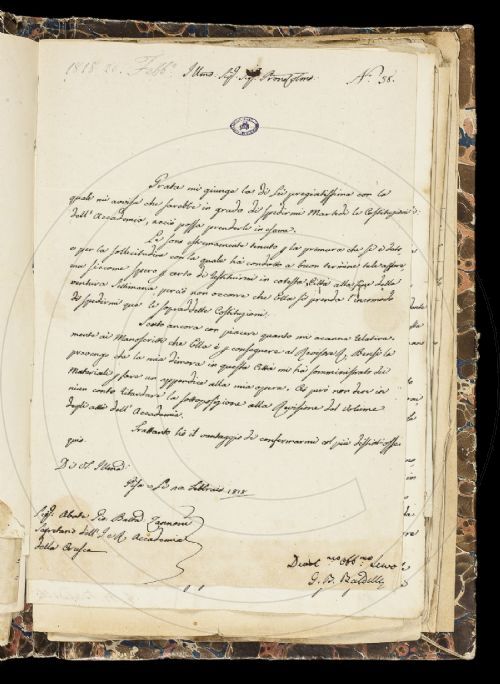 1818 20. Febb.º
Illmo Sig. Sig. Prone Colmo
Nº 38.
Grata mi giunge la di Lei pregiatissima con la
quale mi avvisa che sarebbe in grado di spedirmi Martedì le Costituzioni
dell'Accademia, acciò possa prenderle in esame.
Le sono estremamente tenuto p la premura che si è data,
e per la sollecitudine con la quale ha condotto a buon termine tale affare
ma siccome spero p certo di restituirmi in codesta Città alla fine della
ventura Settimana perciò non occorre che Ella si prenda l'incomodo
di spedirmi qua le sopraddette Costituzioni.
Sento ancora con piacere quanto mi accenna relativa-
mente ai Manoscritti che Ella è p consegnare ai Revisori. Bensì la
prevengo che la mia dimora in questa Città mi ha somministrato dei
Materiali p fare un appendice alla mia opera. Ciò però non deve in
niun conto ritardare la sottoposizione alla Revisione del Volume
degli atti dell'Accademia.
Frattanto ho il vantaggio di confermarmi col più distinto osse-
quio
Di VS Illma
Pisa Lì 20 Febbraio 1818
Sig. Abate Gio. Batta Zannoni
Segretario dell'I e R Accademia
della Crusca
Devot mo Obb mo Servo
G. B. Baldelli